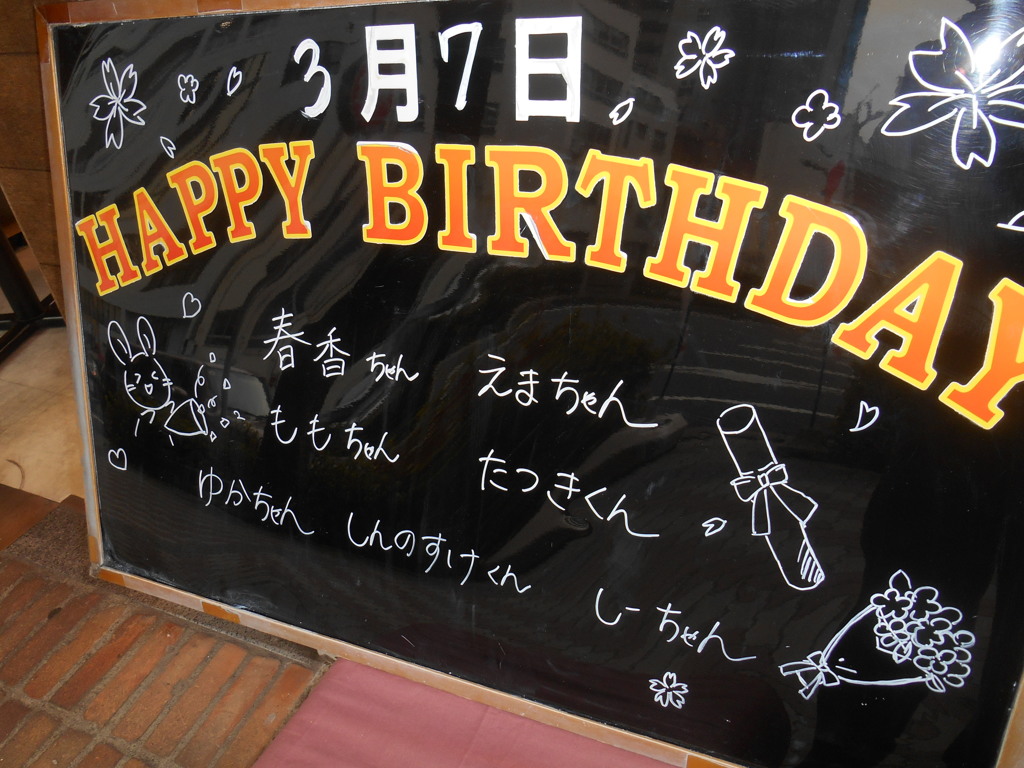 3月7日
HAPPY BIRTHDAY
春香ちゃん
えまちゃん
ももちゃん
たつきくん
ゆかちゃん しんのすけくん
しーちゃん